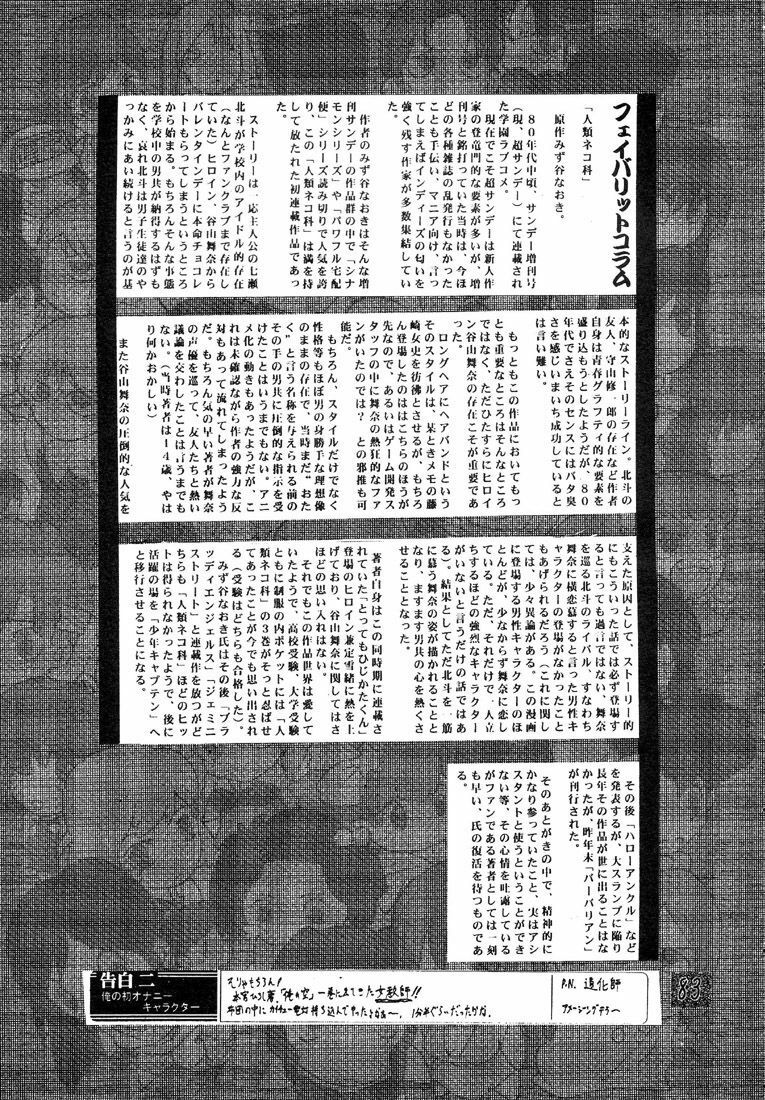 フェイバリットコラム
「人類ネコ科」
原作みず谷なおき。
80年代中頃、サンデー増刊号
(現、超サンデー)にて連載され
た学園ラブコメ。
現在でこそ超サンデーは新人作
家の登竜門的な要素が多いが、増
刊号と銘打っていた当時は、今ほ
どの各種雑誌の乱発行もなかった
ことも手伝い、マニア向け、言っ
てしまえばインディーズの匂いを
強く残す作家が多数集結してい
た。
作者のみず谷なおきはそんな増
刊サンデーの作品群の中で「シナ
モンシリーズ」や「パワフル宅配
便」シリーズ読み切りで人気を誇
り、この「人類ネコ科」は満を持
して放たれた初連載作品であっ
た。
ストーリーは、一応主人公の七瀬
北斗が学校内のアイドル的存在
(なんとファンクラブまで存在し
ていた)ヒロイン、谷山舞奈から
バレンタインデーに本命チョコレ
ートもらってしまうというところ
から始まる。もちろんそんな事態
を学校中の男共が納得するはずも
なく、哀れ北斗は男子生徒達のや
っかみにあい続けると言うのが基
本的なストーリーライン。北斗の
友人、守山修一郎の存在など作者
自身は青春グラフティ的な要素を
盛り込もうとしたようだが、80
年代でさえそのセンスにはバタ臭
さを感じいまいち成功していると
は言い難い。
もっともこの作品においてもっ
とも重要なところはそんなところ
ではなく、ただひたすらにヒロイ
ン谷山舞奈の存在こそが重要であ
った。
ロングヘアにヘアバンドという
そのスタイルは、某ときメモの藤
崎女史を彷彿とさせるが、もちろ
ん登場したのははこちらのほうが
先なので、あるいはゲーム開発ス
タッフの中に舞奈の熱狂的なファ
ンがいたのでは?との邪推も可
能だ。
もちろん、スタイルだけでなく
性格等もほぼ男の身勝手な理想像
のままの存在で、当時まだ”おた
く”と言う名称を与えられる前の
その手の男共に圧倒的な指示を受
けたことはいうまでもない。アニ
メ化の動きもあったようだが、こ
れは未確認ながら作者の強力な反
対もあって流れてしまったよう
だ。もちろん気の早い著者が舞奈
の声優を巡って、友人たちと熱い
議論を交わしたことは言うまでも
ない。(当時著者は14歳、やは
り何かおかしい)
また谷山舞奈の圧倒的な人気を
支えた原因として、ストーリー的
にもこういった話では必ず登場す
ると言っても過言ではない、舞奈
を巡る北斗のライバル、すなわち
舞奈に横恋慕すると言った男性キ
ャラクターの登場がなかったこと
もあげられるだろう(これに関し
ては、少々異論がある。この漫画
に登場する男性キャラクターのほ
とんどが、少なからず舞奈に恋し
ている。ただ、それだけで一人立
ちするほどの強烈なキャラクター
がいないと言うだけの話ではあ
る)。結果としてただ北斗を一筋
に慕う舞奈の姿が描かれることと
なり、ますます男共の心を熱くさ
せることとなった。
著者自身はこの同時期に連載さ
れていた「とってもひじかた君」
登場のヒロイン兼定雪緒に熱を上
げており、谷山舞奈に関してはさ
ほどの思い入れはない。
それでもこの作品世界は愛して
いたようで、高校受験、大学受験
ともに制服の内ポケットには「人
類ネコ科」の3巻がそっと忍ばせ
てあったことが今でも思い出され
る(受験はどちらも合格した)。
みず谷なおき氏はその後「ブラ
ッディエンジェルス」「ジェミニ
ストリート」と連載作を放つがど
ちらも「人類ネコ科」ほどのヒッ
トは得られなかったようで、後に
活躍の場を「少年キャプテン」へ
と移行させることになる。
その後「ハローアンクル」など
を発表するが、大スランプに陥り
長年その作品が世に出ることはな
かったが、昨年末「バーバリアン」
が刊行された。
そのあとがきの中で、精神的に
かなり参っていたこと、実はアシ
スタントと使うということができ
ない等、その心情を吐露している
がファンである著者としては一刻
も早い、氏の復活を待つものであ
る。
告白 二
俺の初オナニー
キャラクター
むりゃもちろん!
本宮ひろし著、「俺の空」一巻に出てきた女教師!!
P.N. 道化師
83